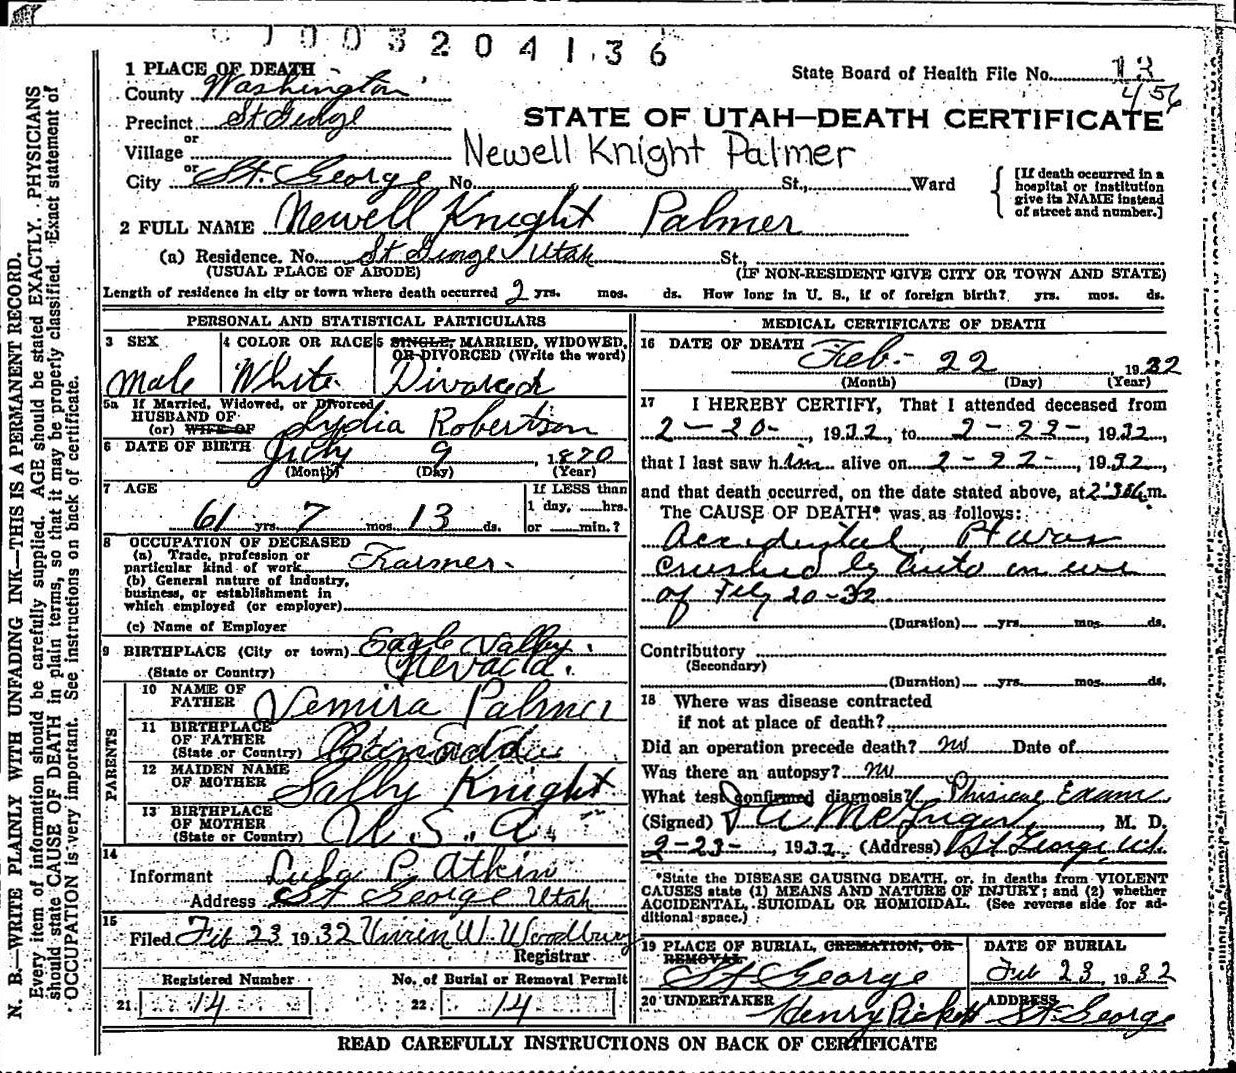 0 0 0 3 2 0 4 1 3 6
1 PLACE OF DEATH
County Washington
State Board of Health File No. 13
456
Precinct St George
STATE OF UTAH—DEATH CERTIFICATE
or
Village
Newell Knight Palmer
or
City St. George No. St., Ward
[If death occurred in a hospital or institution give its NAME instead of street and number.]
2 FULL NAME Newell Knight Palmer
(a) Residence. No. St George Utah St.,
(USUAL PLACE OF ABODE) (IF NON-RESIDENT GIVE CITY OR TOWN AND STATE)
Length of residence in city or town where death occurred 2 yrs. mos. ds. How long in U. S., if of foreign birth? yrs. mos. ds.
PERSONAL AND STATISTICAL PARTICULARS
3 SEX
Male
4 COLOR OR RACE
White
5 SINGLE, MARRIED, WIDOWED,
OR DIVORCED (Write the word)
Divorced
5a If Married, Widowed, or Divorced
HUSBAND OF
(or) WIFE OF Lydia Robertson
6 DATE OF BIRTH July 9, 1870
(Month) (Day) (Year)
7 AGE
61 yrs. 7 mos. 13 ds.
If LESS than
1 day, hrs.
or min.?
8 OCCUPATION OF DECEASED
(a) Trade, profession or
particular kind of work Farmer
(b) General nature of Industry,
business, or establishment in
which employed (or employer)
(c) Name of Employer
9 BIRTHPLACE (City or town) Eagle Valley
(State or Country) Nevada.
PARENTS
10 NAME OF
FATHER Zemira Palmer
11 BIRTHPLACE
OF FATHER
(State or Country) Canada
12 MAIDEN NAME
OF MOTHER Sally Knight
13 BIRTHPLACE
OF MOTHER
(State or Country) U. S. A.
14
Informant P. Atkin
Address St George Utah
15
Filed Feb 23 1932 W. Woodbury
Registrar
Registered Number
21. 14
No. of Burial or Removal Permit
22. 14
MEDICAL CERTIFICATE OF DEATH
16 DATE OF DEATH Feb - 22, 1932
(Month) (Day) (Year)
17 I HEREBY CERTIFY, That I attended deceased from
2-20-, 1932, to 2-22-, 1932,
that I last saw him alive on 2-22-, 1932,
and that death occurred, on the date stated above, at m.
The CAUSE OF DEATH* was as follows:
Accidental. Pt was
crushed by auto in eve
of Feby 20-32
(Duration) yrs. mos. ds.
Contributory
(Secondary)
(Duration) yrs. mos. ds.
18 Where was disease contracted
if not at place of death?
Did an operation precede death? no Date of
Was there an autopsy? no
What test confirmed diagnosis? Physical Exam
(Signed) A McGregor, M. D.
2-23-, 1932. (Address) St George, Ut.
*State the DISEASE CAUSING DEATH, or, in deaths from VIOLENT
CAUSES state (1) MEANS AND NATURE OF INJURY; and (2) whether
ACCIDENTAL, SUICIDAL OR HOMICIDAL. (See reverse side for ad-
ditional space.)
19 PLACE OF BURIAL, CREMATION, OR
REMOVAL
St George
DATE OF BURIAL
Feb 23, 1932
20 UNDERTAKER
Henry Pickett
ADDRESS
St George
READ CAREFULLY INSTRUCTIONS ON BACK OF CERTIFICATE
N. B.—WRITE PLAINLY WITH UNFADING INK—THIS IS A PERMANENT RECORD.
Every item of information should be carefully supplied. AGE should be stated EXACTLY. PHYSICIANS
should state CAUSE OF DEATH in plain terms, so that it may be properly classified. Exact statement of
OCCUPATION is very important. See instructions on back of certificate.